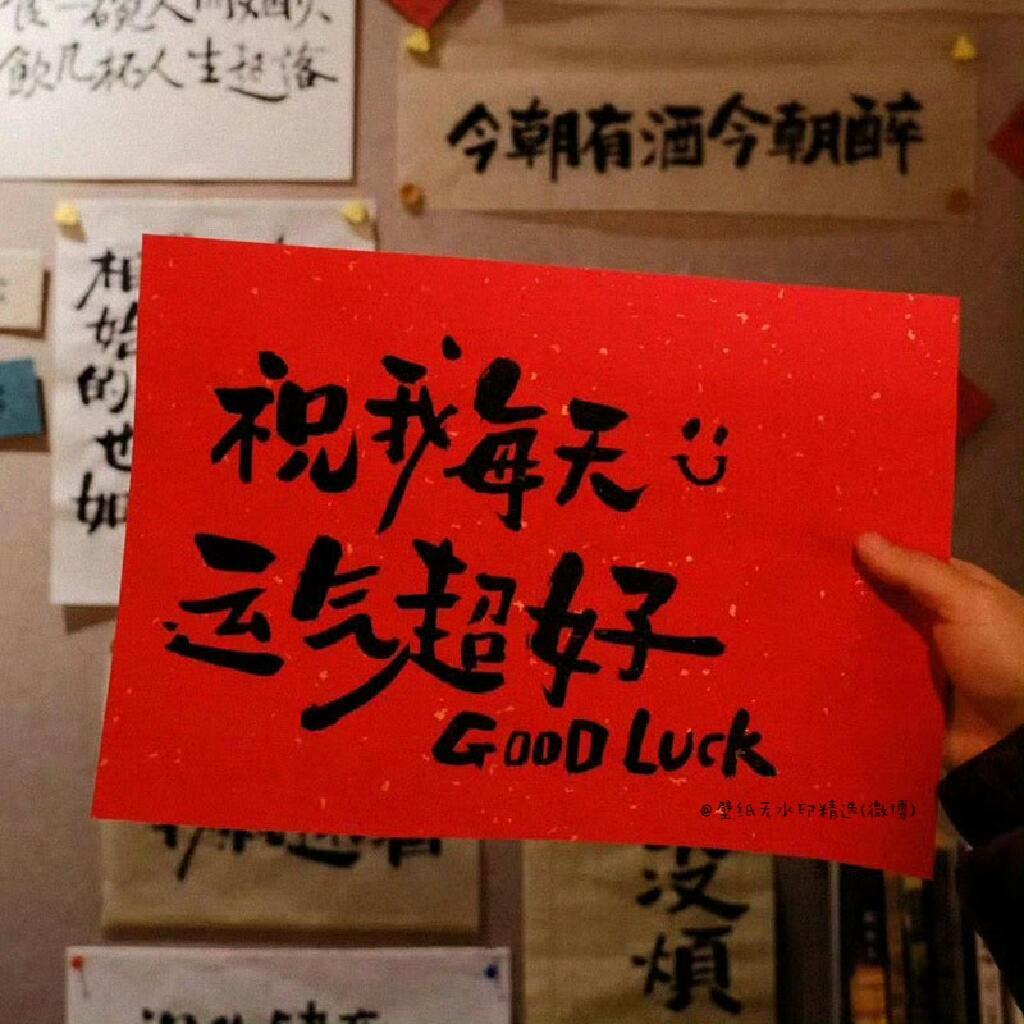 飲几杯人生起落
今朝有酒今朝醉
相
始
的
世
如
祝我每天
运气超好
GOOD LUCK
@壁纸无水印精选(微博)
没
煩